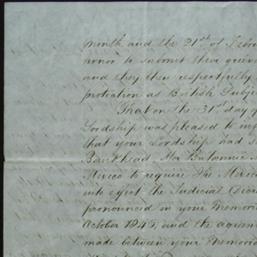 month and the 21st of Febru
honor to submit their griev
and they then respectfully
protection as British Subject
That on the 31st day of
Lordship was pleased to inf
that your Lordship had
Bankhead, Her Britannic
Mexico to require the Mexica
into effect the Judicial decre
pronounced in your Memoria
October 1845, and the agreem
made between your Memoria